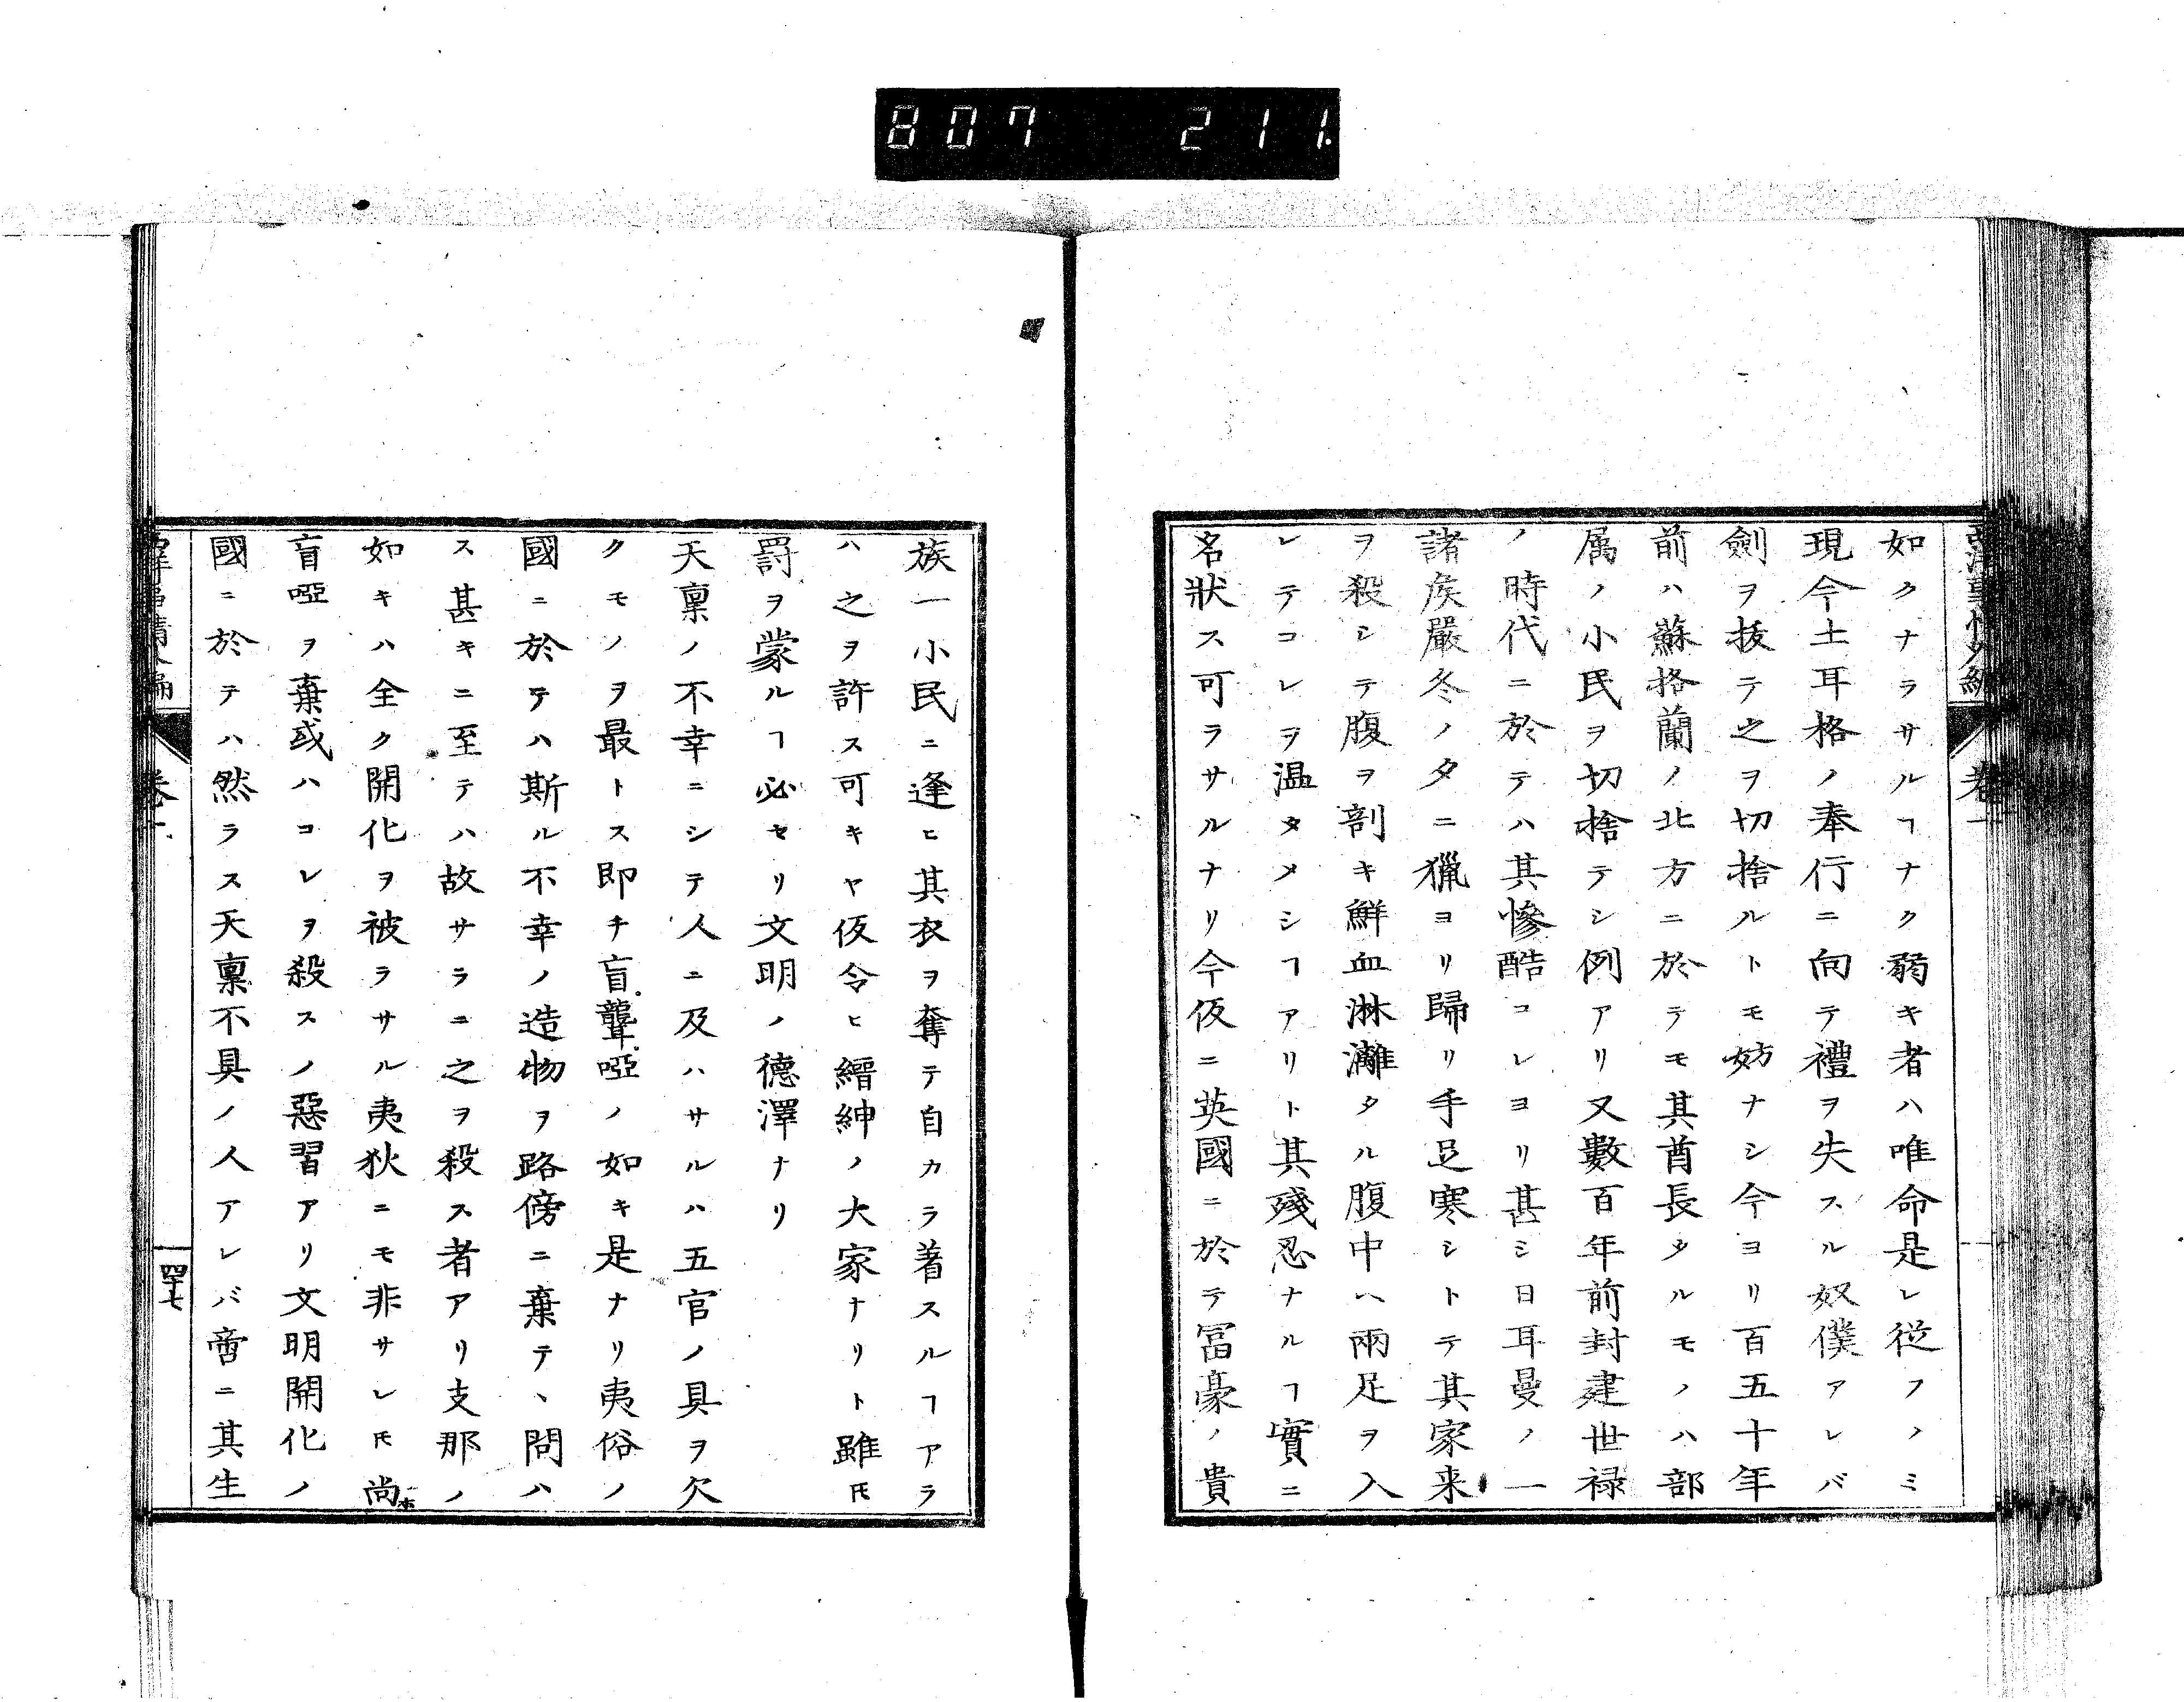 807 211.
西洋事情外編
卷一
如クナラサルヿナク弱キ者ハ唯命是レ從フノミ
現今土耳格ノ奉行ニ向テ禮ヲ失スル奴僕アレバ
劍ヲ拔テ之ヲ切捨ルトモ妨ナシ今ヨリ百五十年
前ハ蘇格蘭ノ北方ニ於テモ其酋長タルモノハ部
属ノ小民ヲ切捨テシ例アリ又數百年前封建世禄
ノ時代ニ於テハ其慘酷コレヨリ甚シ日耳曼ノ一
諸矦嚴冬ノ夕ニ獵ヨリ歸リ手足寒シトテ其家来
ヲ殺シテ腹ヲ剖キ鮮血淋灕タル腹中ヘ兩足ヲ入
レテコレヲ温タメシヿアリト其殘忍ナルヿ實ニ
名狀ス可ラサルナリ今仮ニ英國ニ於テ冨豪ノ貴
族一小民ニ逢ヒ其衣ヲ奪テ自カラ着スルヿアラ
ハ之ヲ許ス可キヤ仮令ヒ縉紳ノ大家ナリト雖𪜈
罸ヲ蒙ルヿ必セリ文明ノ德澤ナリ
天禀ノ不幸ニシテ人ニ及ハサルハ五官ノ具ヲ欠
クモノヲ最トス即チ盲聾啞ノ如キ是ナリ夷俗ノ
國ニ於テハ斯ル不幸ノ造物ヲ路傍ニ棄テヽ問ハ
ス甚キニ至テハ故サラニ之ヲ殺ス者アリ支那ノ
如キハ全ク開化ヲ被ラサル夷狄ニモ非サレ𪜈尚
盲啞ヲ棄或ハコレヲ殺スノ惡習アリ文明開化ノ
國ニ於テハ然ラス天禀不具ノ人アレバ啻ニ其生
卷一
四十七